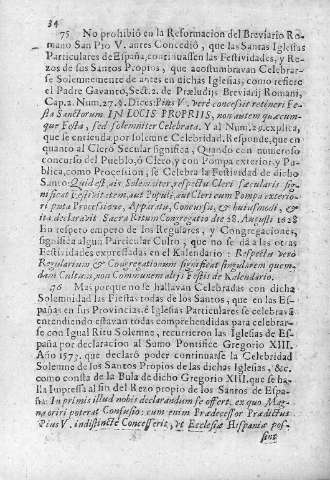 34
75 No prohibió en la Reformacion del Breviario Ro-
mano San Pio V. antes Concedió, que las Santas Iglesias
Particulares de España, continuassen las Festividades, y Re-
zos de sus Santos Propios, que acostumbravan Celebrar-
se Solemnemente de antes en dichas Iglesias, como refiere
el Padre Gavanto, Sect. 2. de Præludijs Breviarij Romani,
Cap. 2. Num. 27. §. Dices Pius V. verè concessit retineri Fe-
sta Sanctorum IN LOCIS PROPRIIS, non autem quæcum-
que Festa, sed solemniter Celebrata. Y al Num. explica,
que se entienda por solemne Celebridad. Responde, que en
quanto al Clero Secular significa, Quando con numeroso
concurso del Pueblo, ó Clero, y con Pompa exterior, y Pu-
blica, como Procession, se Celebra la Festividad de dicho
Santo: Quid est, ait Solemniter, respectu Cleri sæcularis sig-
nificat Festivitatem, aut Populi, aut Cleri cum Pompa exterio-
ri puta Processione, Apparatu, Concursu, & huiusmodi, &
ita declaravit Sacra Rituum Congregatio die 28. Augusti 1628
En respeto empero de los Regulares, y Congregaciones,
significa algun Particular Culto, que no se dá a las otras
Festividades expressadas en el Kalendario: Respectu verò
Regularium & Congregationum significat singularem quem-
dam Cultum, non Communem alijs Festis de Kalendario.
76 Mas porque no se hallavan Celebradas con dicha
Solemnidad las Fiestas todas de los Santos, que en las Es-
pañas en sus Provincias, é Iglesias Particulares se celebravã
entendiendo estavan todas comprehendidas para celebrar-
se con Igual Ritu Solemne, recurrieron las Iglesias de Es-
paña por declaracion al Sumo Pontifice Gregorio XIII.
Año 1573. que declaró poder continuarse la Celebridad
Solemne de los Santos Propios de las dichas Iglesias, &c.
como consta de la Bula de dicho Gregorio XIII. que se ha-
lla Impressa al fin del Rezo propio de los Santos de Espa-
ña: In primis illud nobis declarandum se offert, ex quo Mag-
na oriri poterat Confusio: cum enim Prædecessor Prædictus
Pius V. indistinctè Concesserit, ut Ecclesiæ Hispaniæ pos-
sint